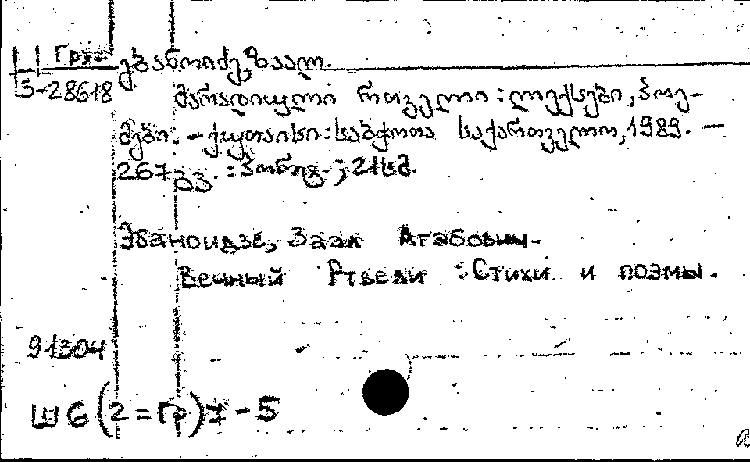 Ц Груз
5-28618
ებანოიძე, ზაალ.
მარადიული რთველი : ლექსები, პოე-
მები. – ქუთაისი : საბჭოთა საქართველო, 1989. –
267 გვ. : პორტ. ; 21 სმ.
Эбаноидзе, Заал Атабович.
Вечный Ртвели : Стихи и поэмы.
91304
Ш6(2=Гр)7-5